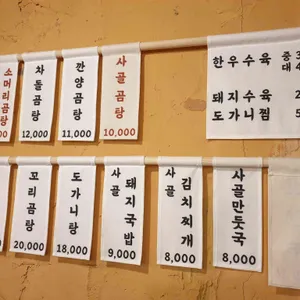 소머리곰탕
차돌곰탕
12,000
깐양곰탕
11,000
사골곰탕
10,000
한우수육 중
대
돼지수육
도가니찜
꼬리곰탕
20,000
도가니탕
18,000
사골
돼지국밥
9,000
사골
김치찌개
8,000
사골만둣국
8,000